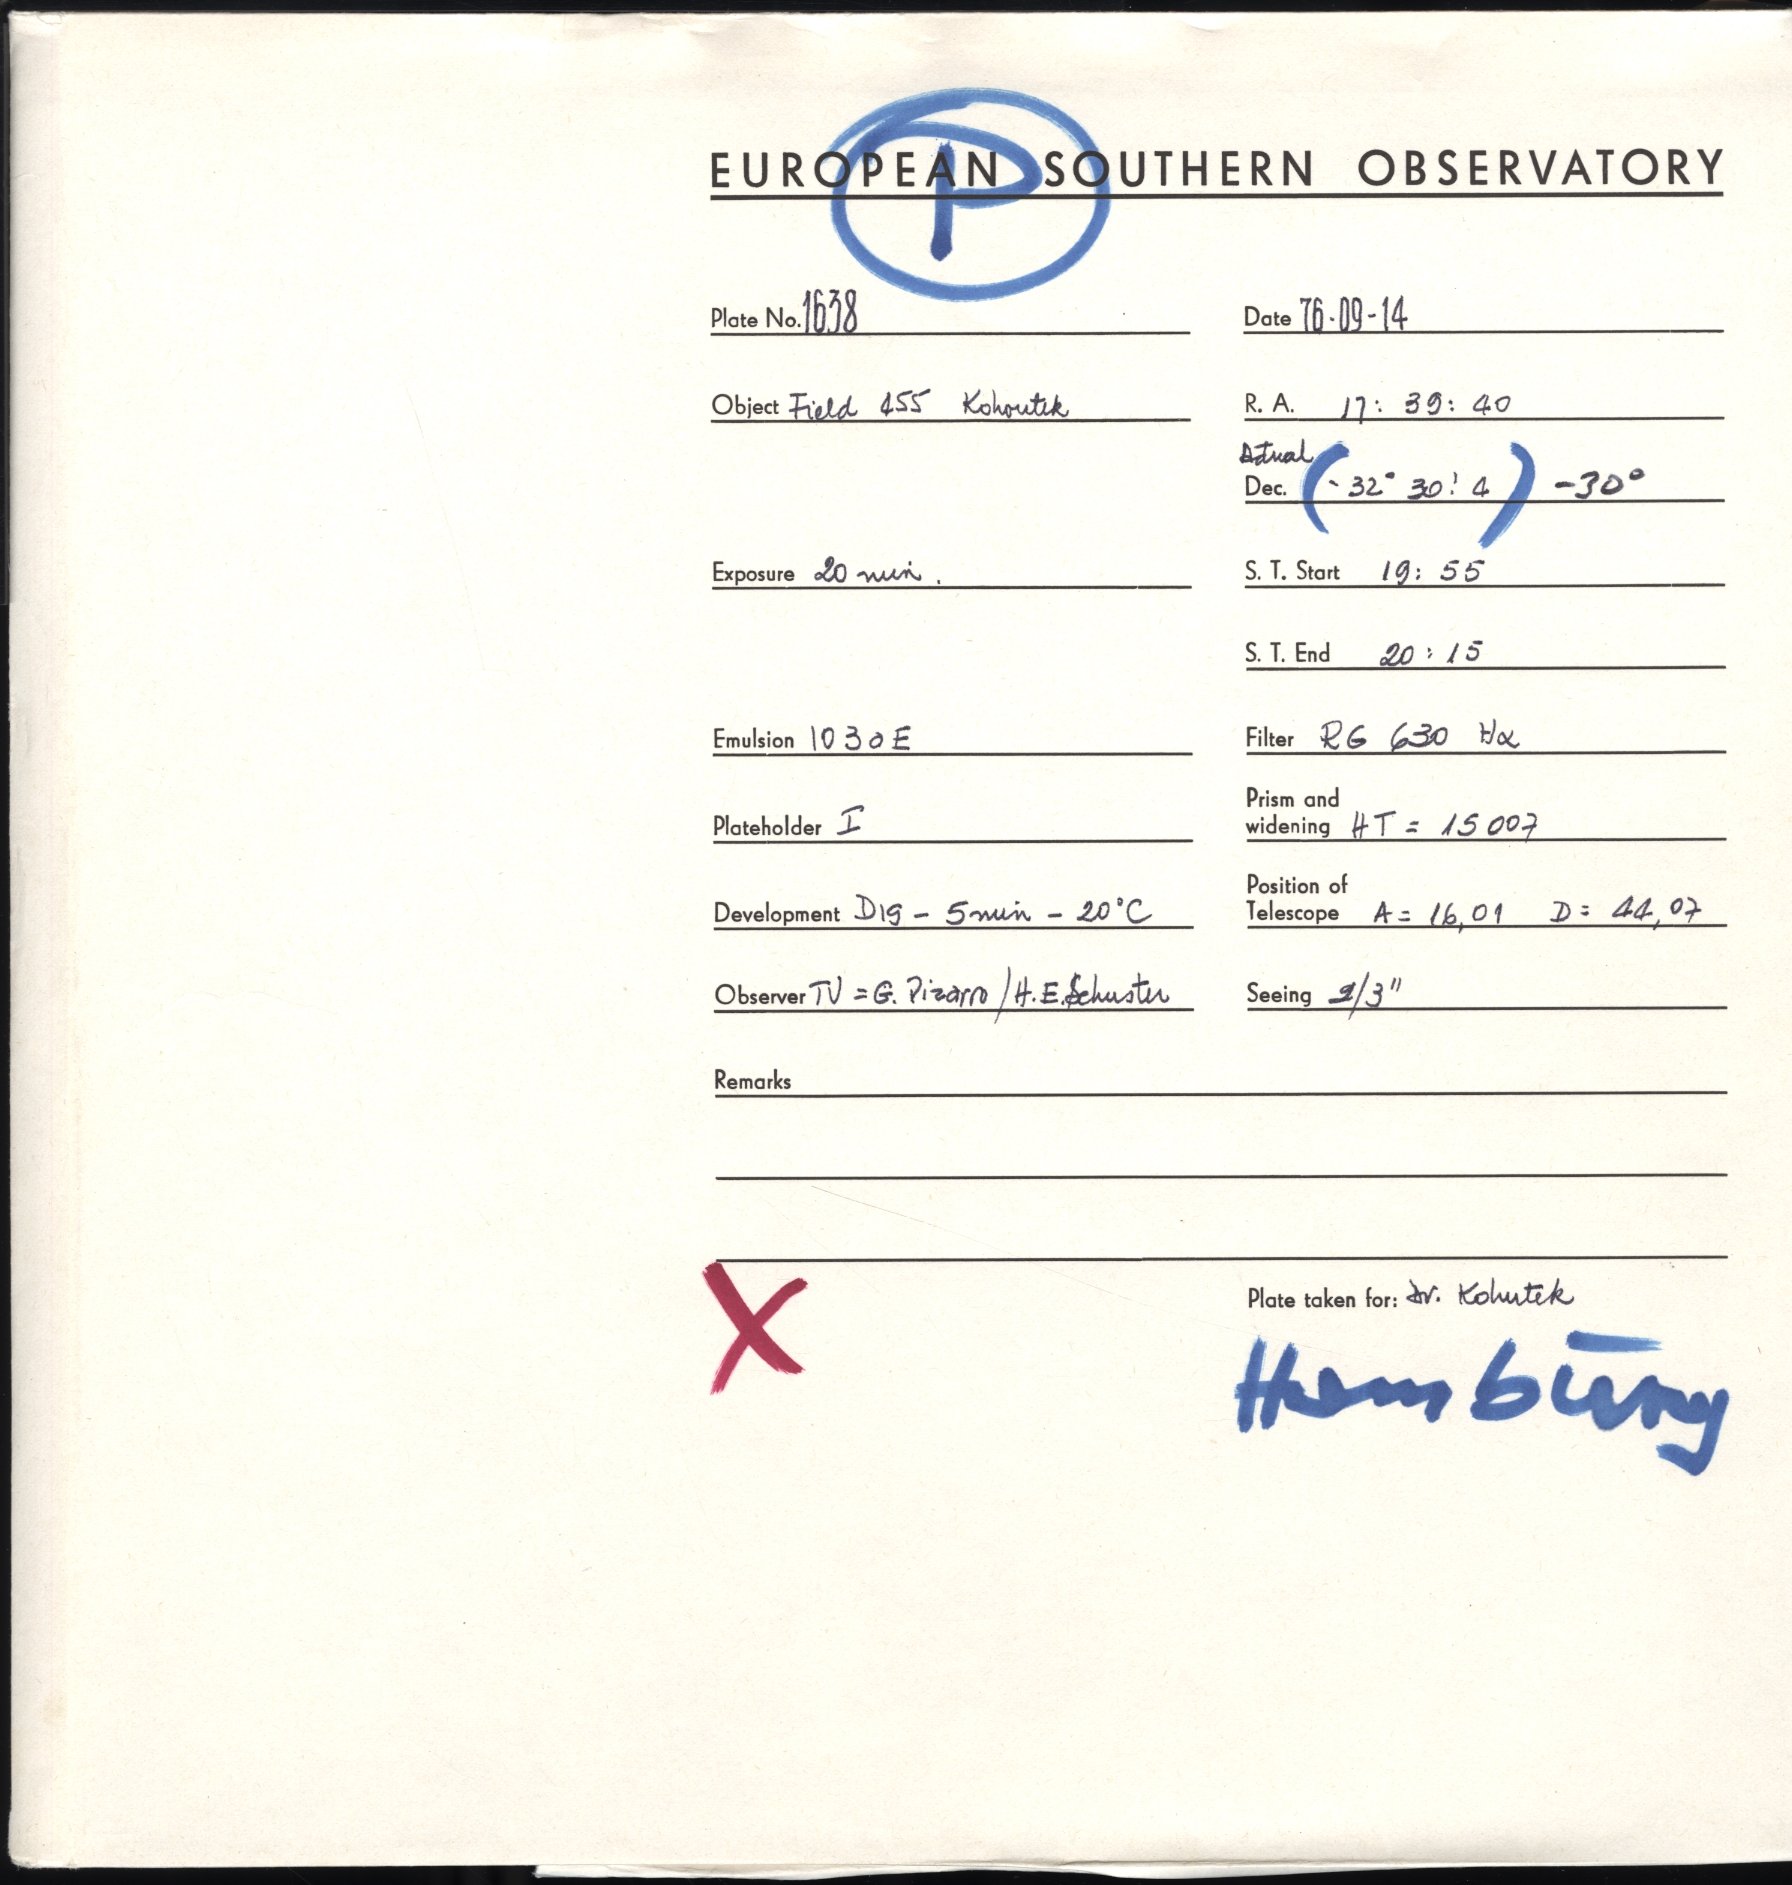 P
EUROPEAN SOUTHERN OBSERVATORY
Plate No. 1638 Date 76-09-14
Object Field 455 Kohoutek R. A. 17: 39: 40
Actual
Dec. (-32° 30! 4) -30°
Exposure 20 min. S. T. Start 19: 55
S. T. End 20: 15
Emulsion 1030E Filter RG 630 Hα
Prism and
Plateholder I widening HT = 15007
Position of
Development D19 - 5min - 20°C Telescope A = 16,01 D = 44,07
Observer TV = G. Pizarro / H.E. Schuster Seeing 2/3"
Remarks
X
Plate taken for: Dr. Kohutek
Hamburg